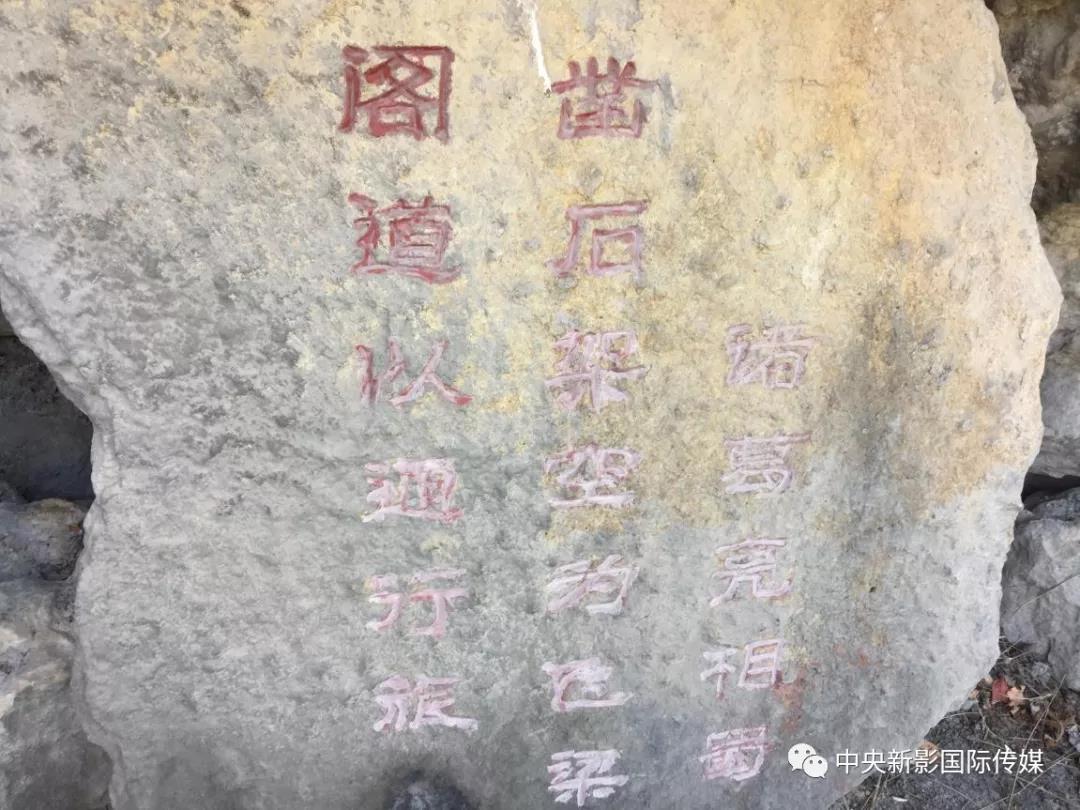 诸葛亮相蜀
凿石架空为飞梁
阁道以通行旅
中央新影国际传媒